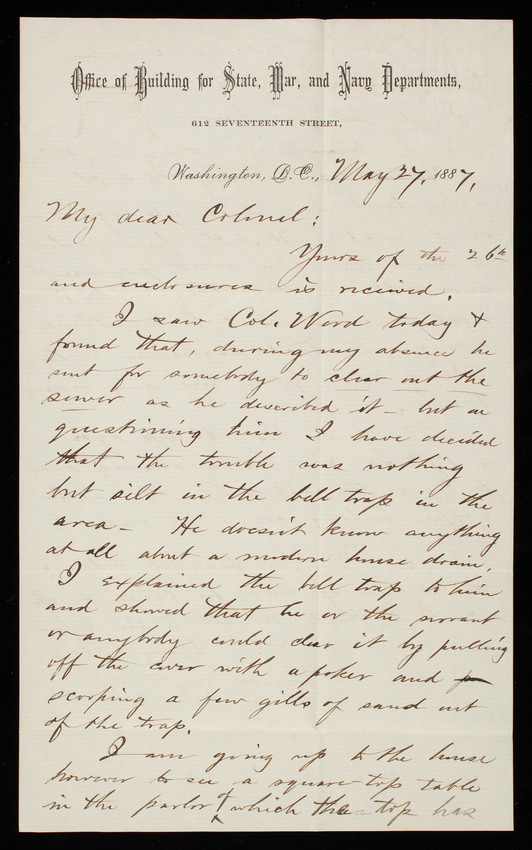 Office of Building for State, War, and Navy Departments,
612 SEVENTEENTH STREET,
Washington, D. C., May 27, 1887,
My dear Colonel:
Yours of the 26th
and enclosures is received.
I saw Col. Word today &
found that, during my absence he
sent for somebody to clear out the
sewer as he described it - but on
questioning him I have decided
that the trouble was nothing
but silt in the bell trap in the
area - He doesn't know anything
at all about a modern house drain.
I explained the bell trap to him
and showed that he or the servant
or anybody could clear it by pulling
off the cover with a poker and
scooping a few gills of sand out
of the trap.
I am going up to the house
however to see a square-top table
in the parlor of which the top has